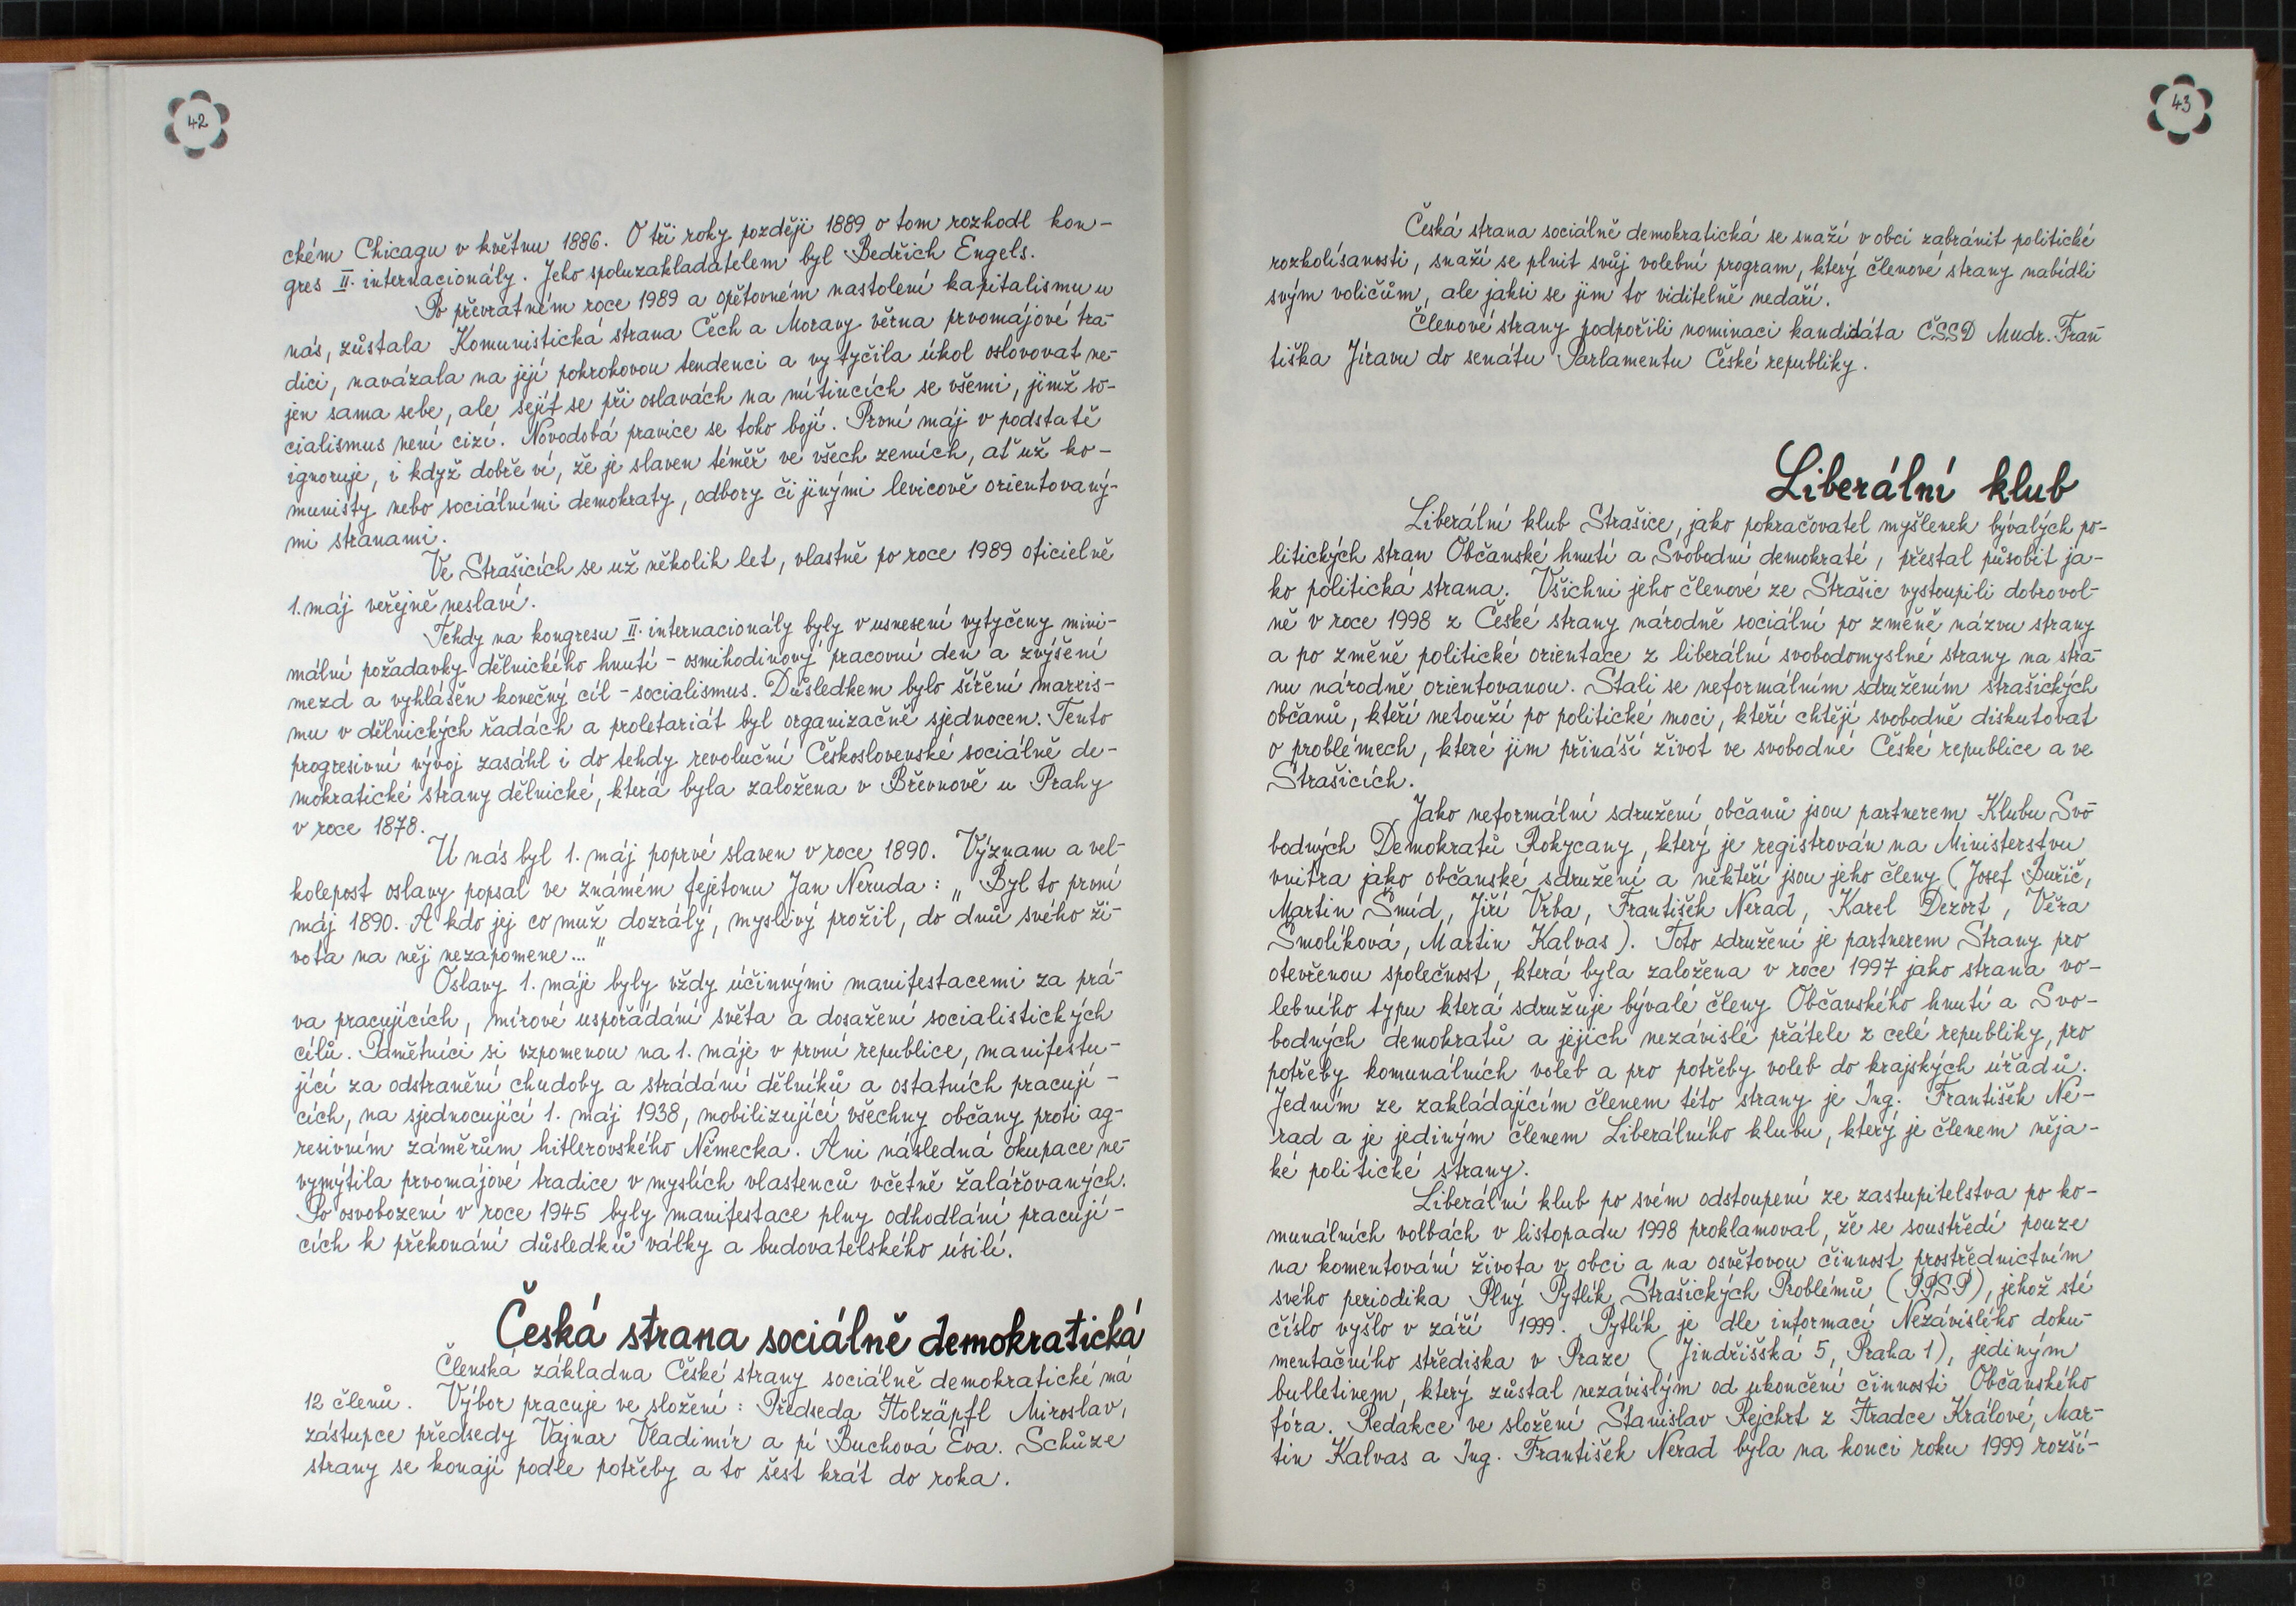 42
ckém Chicagu v květnu 1886. O tři roky později 1889 o tom rozhodl kon-
gres II. internacionály. Jeho spoluzakladatelem byl Bedřich Engels.
Po převratném roce 1989 a opětovném nastolení kapitalismu u
nás, zůstala Komunistická strana Čech a Moravy věrna prvomájové tra-
dici, navázala na její pokrokovou tendenci a vytyčila úkol oslovovat ne-
jen sama sebe, ale sejít se při oslavách na mítincích se všemi, jimž so-
cialismus není cizí. Novodobá pravice se toho bojí. První máj v podstatě
ignoruje, i když dobře ví, že je slaven téměř ve všech zemích, ať už ko-
munisty nebo sociálními demokraty, odbory či jinými levicově orientovaný-
mi stranami.
Ve Strašicích se už několik let, vlastně po roce 1989 oficielně
1. máj veřejně neslaví.
Tehdy na kongresu II. internacionály byly v usnesení vytyčeny mini-
mální požadavky dělnického hnutí - osmihodinový pracovní den a zvýšení
mezd a vyhlášen konečný cíl - socialismus. Důsledkem bylo šíření marxis-
mu v dělnických řadách a proletariát byl organizačně sjednocen. Tento
progresivní vývoj zasáhl i do tehdy revoluční Československé sociálně de-
mokratické strany dělnické, která byla založena v Břevnově u Prahy
v roce 1878.
U nás byl 1. máj poprvé slaven v roce 1890. Význam a vel-
kolepost oslavy popsal ve známém fejetonu Jan Neruda: „Byl to první
máj 1890. A kdo jej co muž dozrálý, myslivý prožil, do dnů svého ži-
vota na něj nezapomene..."
Oslavy 1. máje byly vždy účinnými manifestacemi za prá-
va pracujících, mírové uspořádání světa a dosažení socialistických
cílů. Pamětníci si vzpomenou na 1. máje v první republice, manifestu-
jící za odstranění chudoby a strádání dělníků a ostatních pracují-
cích, na sjednocující 1. máj 1938, mobilizující všechny občany proti ag-
resivním záměrům hitlerovského Německa. Ani následná okupace ne-
vymýtila prvomájové tradice v myslích vlastenců včetně žalářovaných.
Po osvobození v roce 1945 byly manifestace plny odhodlání pracují-
cích k překonání důsledků války a budovatelského úsilí.
Česká strana sociálně demokratická
Členská základna České strany sociálně demokratické má
12 členů. Výbor pracuje ve složení: Předseda Holzäpfl Miroslav,
zástupce předsedy Vajnar Vladimír a pí Buchová Eva. Schůze
strany se konají podle potřeby a to šest krát do roka.
43
Česká strana sociálně demokratická se snaží v obci zabránit politické
rozkolísanosti, snaží se plnit svůj volební program, který členové strany nabídli
svým voličům, ale jaksi se jim to viditelně nedaří.
Členové strany podpořili nominaci kandidáta ČSSD Mudr. Fran-
tiška Jíravu do senátu Parlamentu České republiky.
Liberální klub
Liberální klub Strašice, jako pokračovatel myšlenek bývalých po-
litických stran Občanské hnutí a Svobodní demokraté, přestal působit ja-
ko politická strana. Všichni jeho členové ze Strašic vystoupili dobrovol-
ně v roce 1998 z České strany národně sociální po změně názvu strany
a po změně politické orientace z liberální svobodomyslné strany na stra-
nu národně orientovanou. Stali se neformálním sdružením strašických
občanů, kteří netouží po politické moci, kteří chtějí svobodně diskutovat
o problémech, které jim přináší život ve svobodné České republice a ve
Strašicích.
Jako neformální sdružení občanů jsou partnerem Klubu Svo-
bodných Demokratů Rokycany, který je registrován na Ministerstvu
vnitra jako občanské sdružení a někteří jsou jeho členy (Josef Buřič,
Martin Šmíd, Jiří Vrba, František Nerad, Karel Dezort, Věra
Smolíková, Martin Kalvas). Toto sdružení je partnerem Strany pro
otevřenou společnost, která byla založena v roce 1997 jako strana vo-
lebního typu která sdružuje bývalé členy Občanského hnutí a Svo-
bodných demokratů a jejich nezávislé přátele z celé republiky, pro
potřeby komunálních voleb a pro potřeby voleb do krajských úřadů.
Jedním ze zakládajícím členem této strany je Ing. František Ne-
rad a je jediným členem Liberálního klubu, který je členem něja-
ké politické strany.
Liberální klub po svém odstoupení ze zastupitelstva po ko-
munálních volbách v listopadu 1998 proklamoval, že se soustředí pouze
na komentování života v obci a na osvětovou činnost prostřednictvím
svého periodika Plný Pytlík Strašických Problémů (PPSP), jehož sté
číslo vyšlo v září 1999. Pytlík je dle informací Nezávislého doku-
mentačního střediska v Praze (Jindřišská 5, Praha 1), jediným
bulletinem, který zůstal nezávislým od ukončení činnosti Občanského
fóra. Redakce ve složení Stanislav Rejchrt z Hradce Králové, Mar-
tin Kalvas a Ing. František Nerad byla na konci roku 1999 rozší-